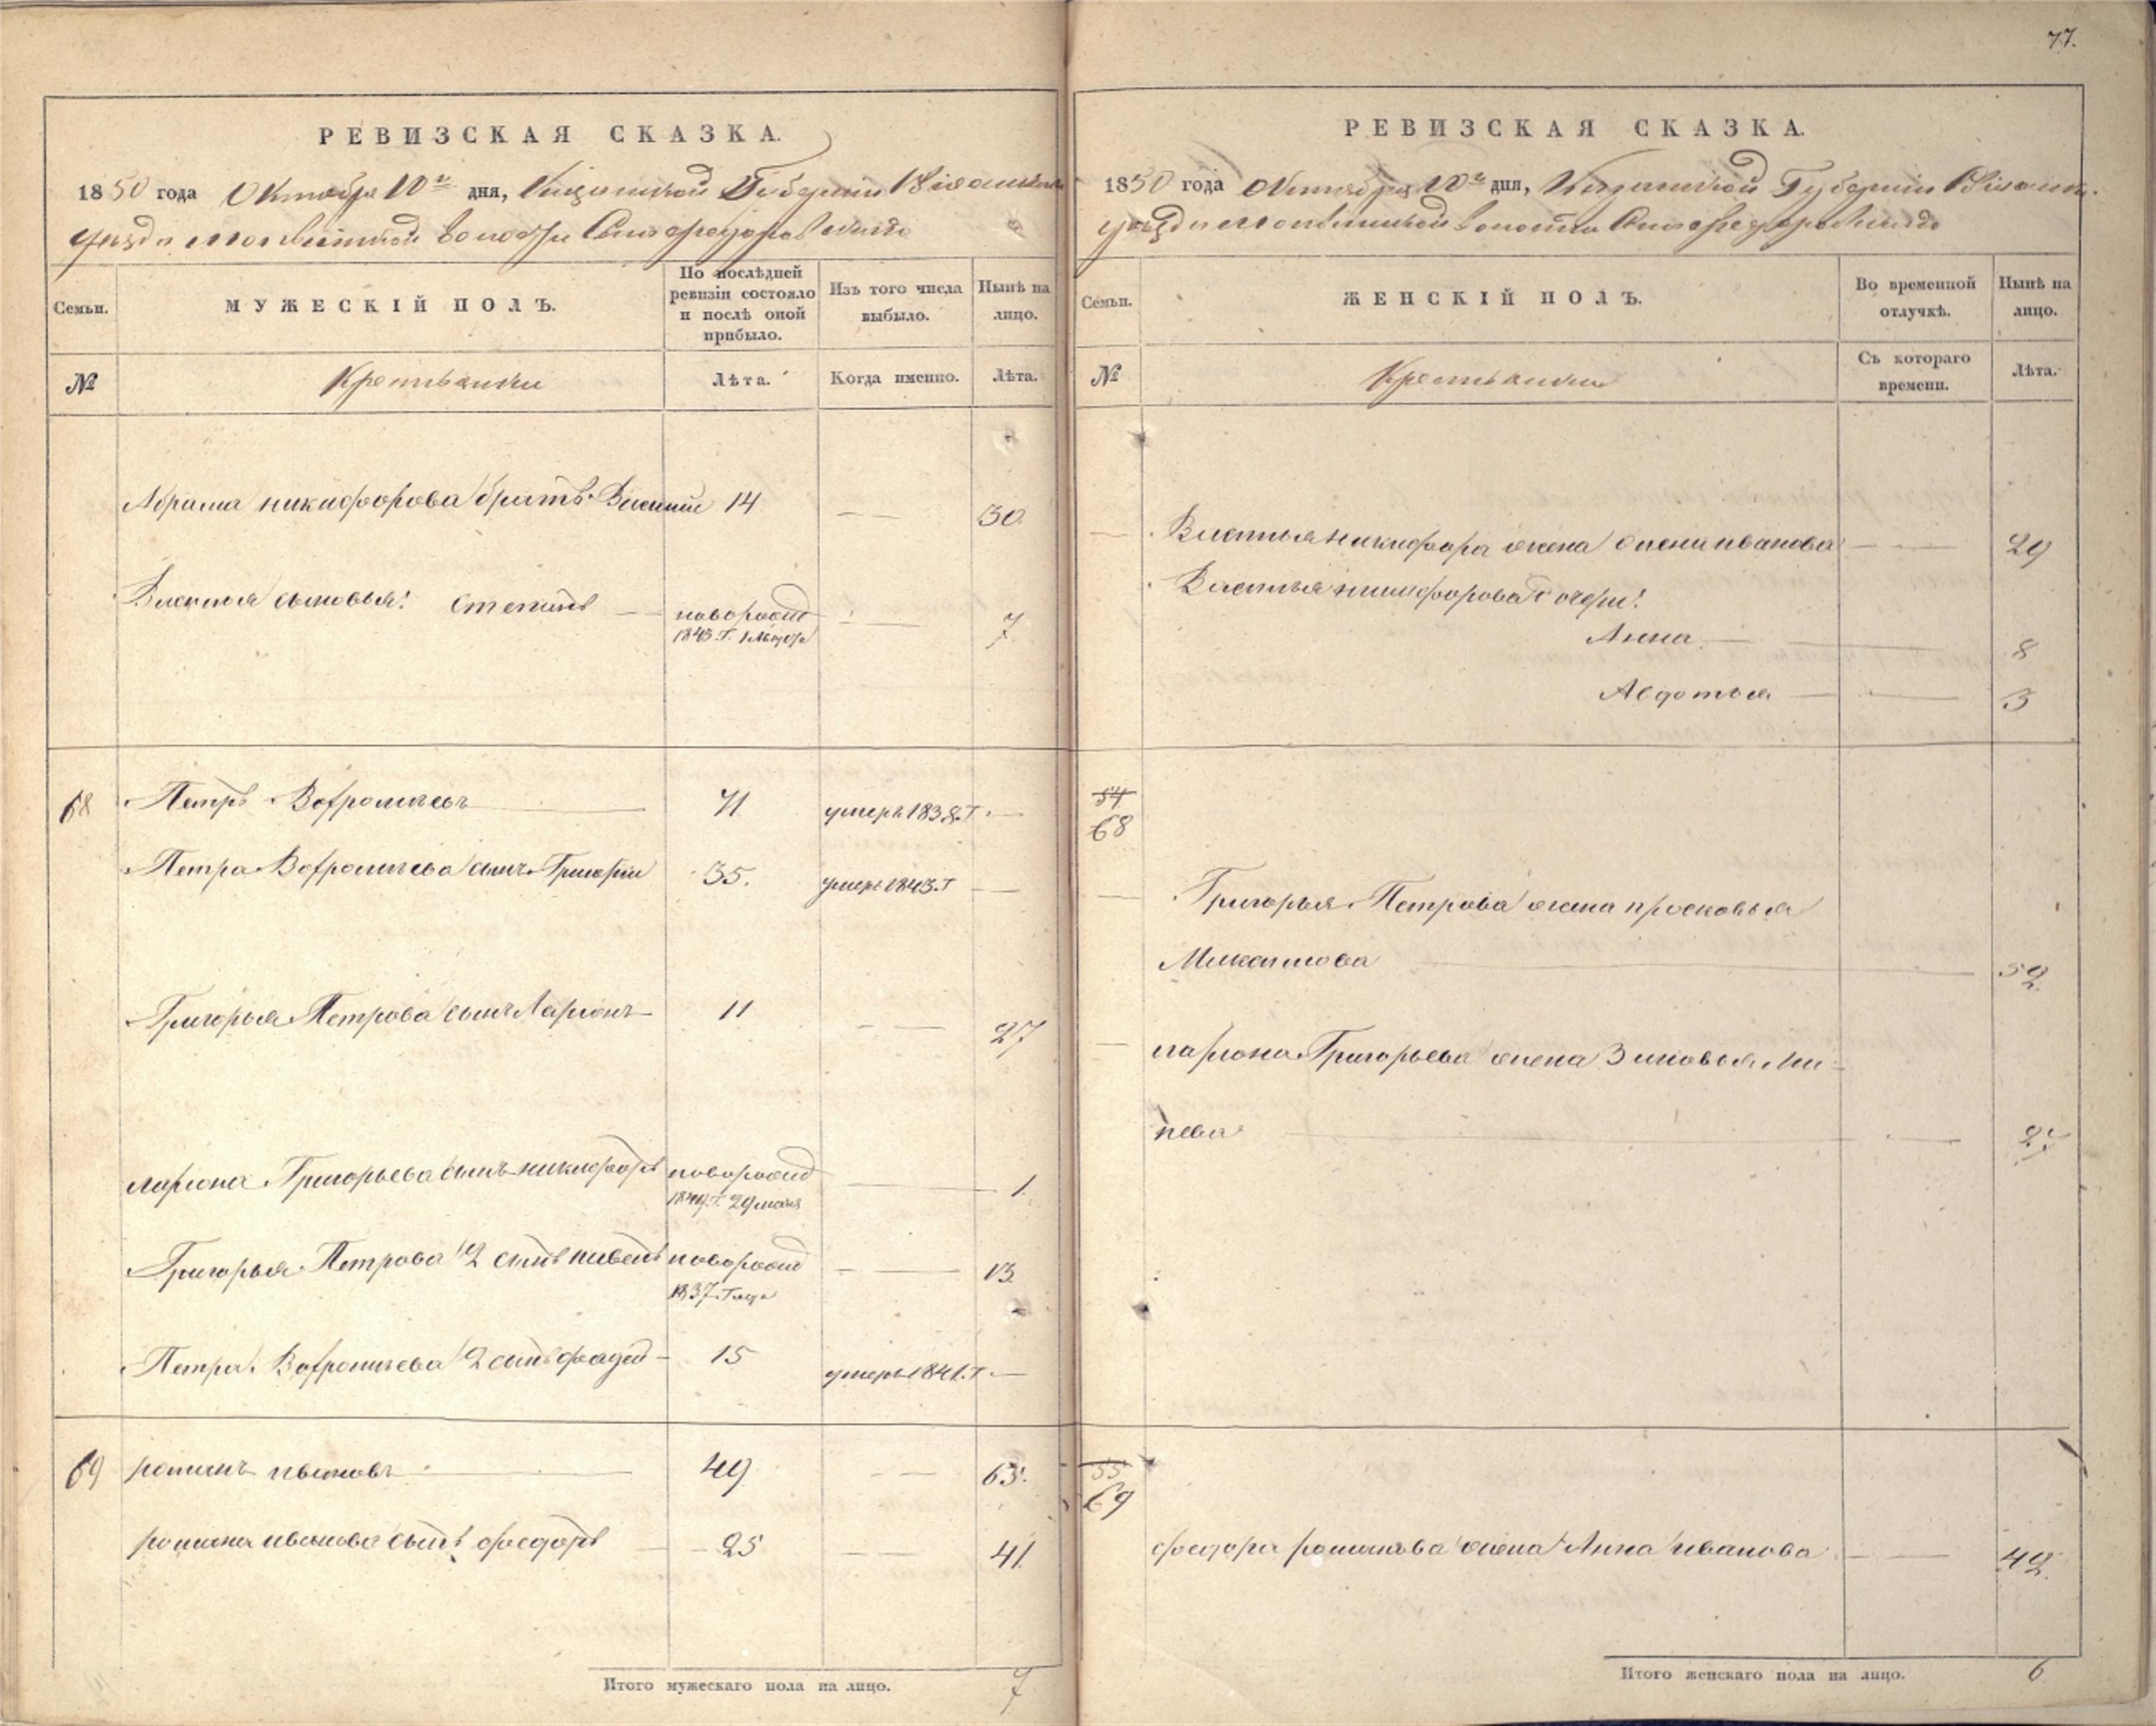 77.
РЕВИЗСКАЯ СКАЗКА.
1850 года Октября 10го дня, Казанской Губернии
уезда волости
Семьи.
МУЖЕСКІЙ ПОЛЪ.
По послѣдней ревизіи состояло и послѣ оной прибыло.
Изъ того числа выбыло.
Нынѣ на лицо.
№
Крестьянъ
Лѣта.
Когда именно.
Лѣта.
Абрама никифорова братъ Василий 14 — — 30.
Василья сыновья: Степанъ — новорожд — — 7
1843. Г.
68 Петръ Вофромѣевъ — 71 умеръ 1838. Г. —
Петра Вофромѣева сынъ Григорій 35. умеръ 1843. Г —
Григорья Петрова сынъ Ларіонъ 11 — — 27
ларіона Григорьева сынъ никифоръ новорожд — 1.
1849. Г. 29 мая
Григорья Петрова 2 сынъ павелъ новорожд — 13
1837. Года
Петра Вофромѣева 2 сынъ фадей — 15 умеръ 1841. Г. —
69 романъ ивановъ — 49 — — 65.
романа иванова сынъ федоръ — 25 — — 41.
Итого мужескаго пола на лицо. 7
РЕВИЗСКАЯ СКАЗКА.
1850 года Октября 10го дня, Казанской Губернии
уезда волости
Семьи.
ЖЕНСКІЙ ПОЛЪ.
Во временной отлучкѣ.
Нынѣ на лицо.
№
Съ котораго времени.
Лѣта.
— Василья никифора жена иванова — — 29
Василья никифорова дочери:
Анна — — 8
Авдотья — — 3
54
68
— Григорья Петрова жена просковья
Максимова — — 52.
— лариона Григорьева жена Зиновья Ми-
неева — — 27
55
69
федора романова жена Анна иванова — — 42.
Итого женскаго пола на лицо. 6